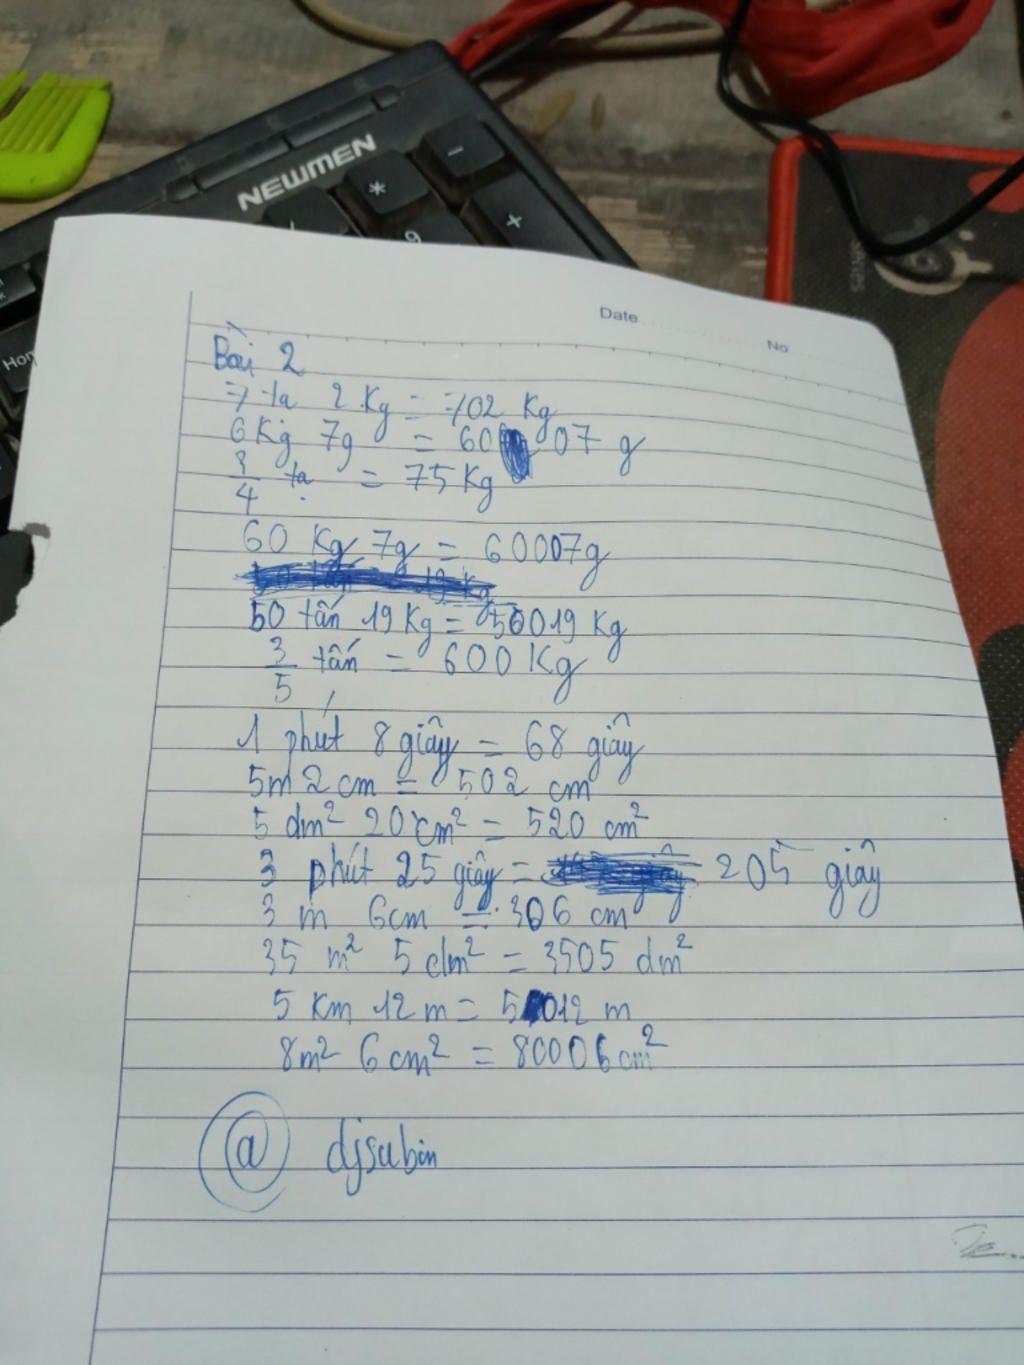 NEWMEN
Date
No
Bài 2
7 tạ 2 Kg = 702 Kg
6 Kg 7g = 6007 g
3/4 tạ = 75 Kg
60 Kg 7g = 60007g
50 tấn 19 Kg = 50019 Kg
3/5 tấn = 600 Kg
1 phút 8 giây = 68 giây
5m 2 cm = 502 cm
5 dm² 20 cm² = 520 cm²
3 phút 25 giây = 205 giây
3 m 6cm = 306 cm
35 m² 5 dm² = 3505 dm²
5 Km 12 m = 5012 m
8m² 6 cm² = 80006 cm²
@ djsubin